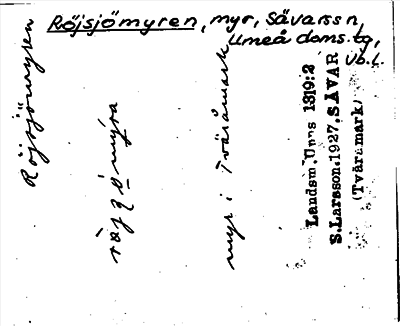 Röjsjömyren, myr, Sävars sn,
Umeå doms.tg,
Vb.l.
Röjsjömyren
myr i Tväråmark
Landsm. Upps 1319:2
S.Larsson.1927.SÄVAR
(Tväråmark)